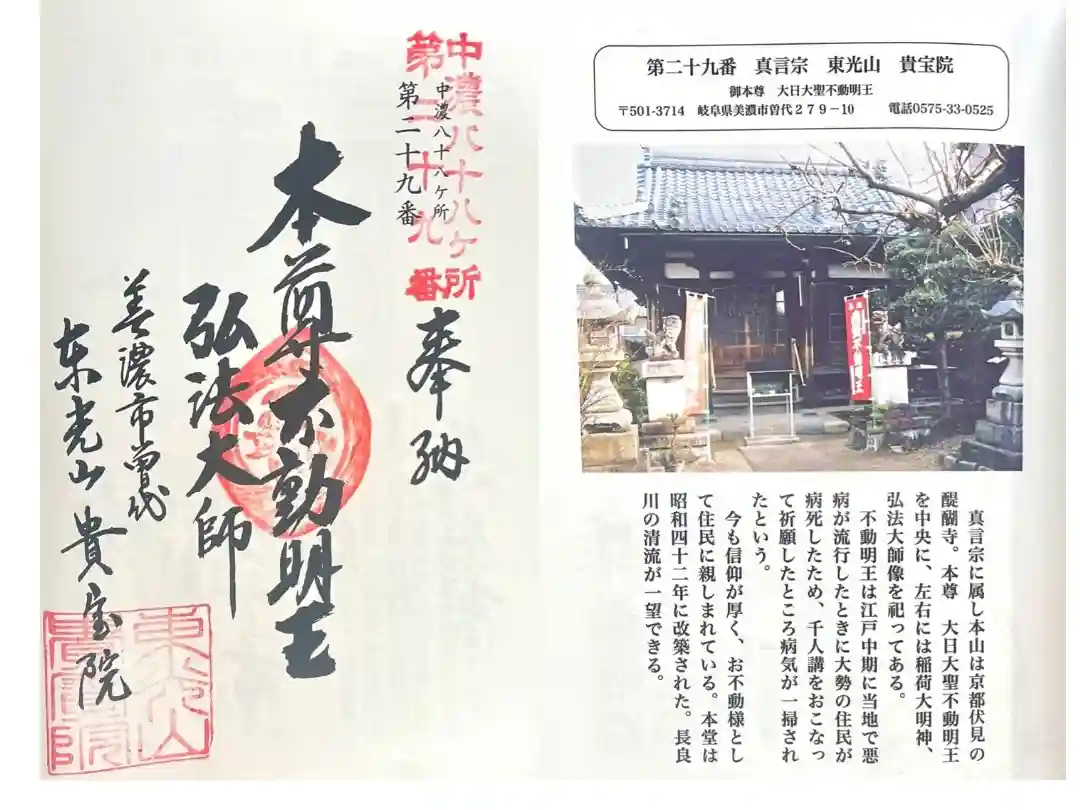 第二十九番　真言宗　東光山　貴宝院
御本尊　大日大聖不動明王
〒501-3714　岐阜県美濃市曽代２７９－10　電話0575-33-0525
真言宗に属し本山は京都伏見の
醍醐寺。本尊　大日大聖不動明王
を中央に、左右には稲荷大明神、
弘法大師像を祀ってある。
不動明王は江戸中期に当地で悪
病が流行したときに大勢の住民が
病死したため、千人講をおこなっ
て祈願したところ病気が一掃され
たという。
今も信仰が厚く、お不動様とし
て住民に親しまれている。本堂は
昭和四十二年に改築された。長良
川の清流が一望できる。
中濃八十八ヶ所
第二十九番
中濃八十八ヶ所
第二十九番
奉納
本尊不動明王
弘法大師
美濃市曽代
東光山貴宝院
東光山
貴宝院